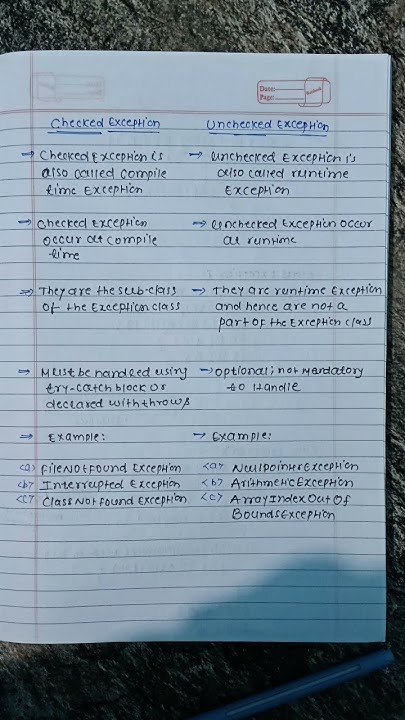 Date:
Page:
Checked Exception
Unchecked Exception
→ Checked Exception is
also called compile
time Exception
→ unchecked Exception is
also called runtime
Exception
→ Checked Exception
occur at compile
time
→ Unchecked Exception occur
at runtime
⇒ They are the sub-class
of the Exception class
→ They are runtime Exception
and hence are not a
part of the Exception class
⇒ Must be handeed using
try-catch block or
declared with throws
→ optional; not mandatory
to Handle
⇒ Example:
→ Example:
<a> FileNotFound Exception
<b> Interrupted Exception
<c> ClassNotFound Exception
<a> NullpointerException
<b> ArithmeticException
<c> ArrayIndexOutOf
BoundsException